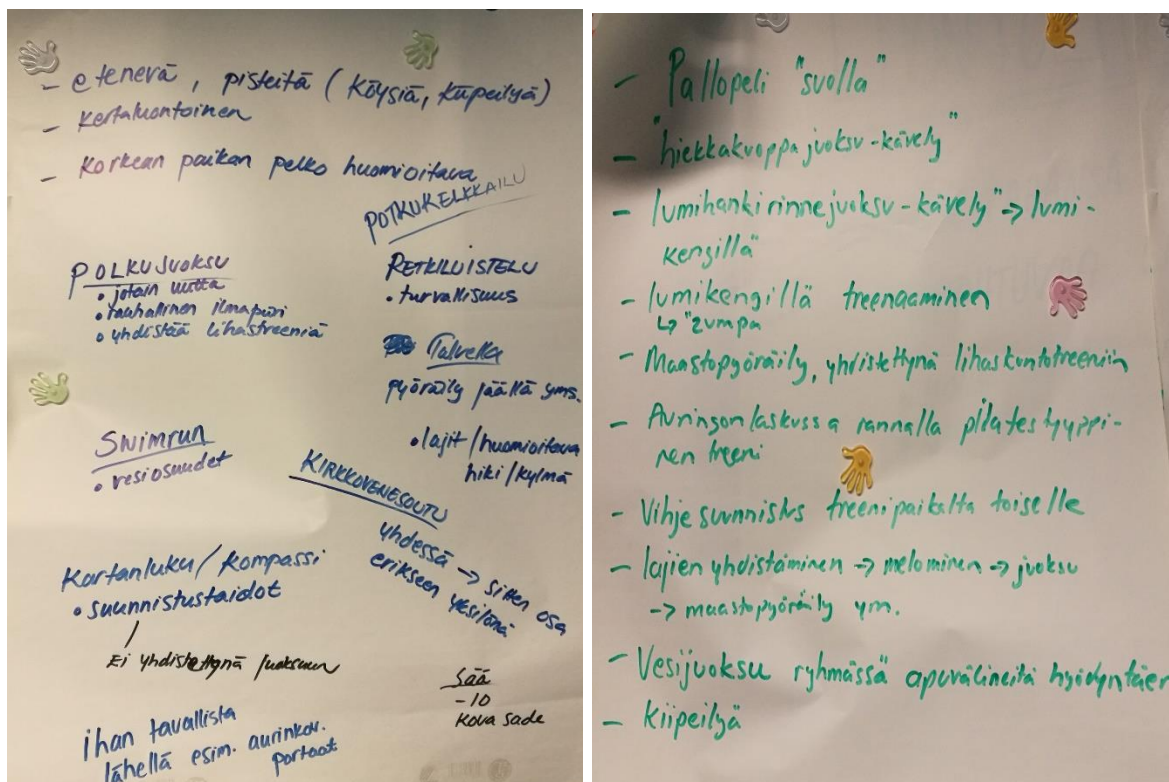 - etenevä, pisteitä (köysiä, kiipeilyä)
- kertaluontoinen
- korkean paikan pelko huomioitava
POTKUKELKKAILU
POLKUJUOKSU
• jotain uutta
• rauhallinen ilmapiiri
• yhdistää lihastreeniä
RETKILUISTELU
• turvallisuus
Talvella
pyöräily jäällä yms.
• lajit/huomioitava
hiki/kylmä
Swimrun
• vesiosuudet
KIRKKOVENESOUTU
yhdessä -> sitten osa
erikseen yksilönä
Kartanluku/kompassi
• suunnistustaidot
Ei yhdistettynä juoksuun
Sää
-10
Kova sade
ihan tavallista
lähellä esim. aurinkov.
portaat
- Pallopeli "suolla"
- "hiekkakuoppajuoksu-kävely"
- lumihankirinnejuoksu-kävely" -> lumi-
kengillä"
- lumikengillä treenaaminen
↳ "zumpa
- Maastopyöräily, yhdistettynä lihaskuntotreeniin
- Auringonlaskussa rannalla pilatestyyppi-
nen treeni
- Vihjesuunnistus treenipaikalta toiselle
- lajien yhdistäminen -> melominen -> juoksu
-> maastopyöräily ym.
- Vesijuoksu ryhmässä apuvälineitä hyödyntäen
- kiipeilyä